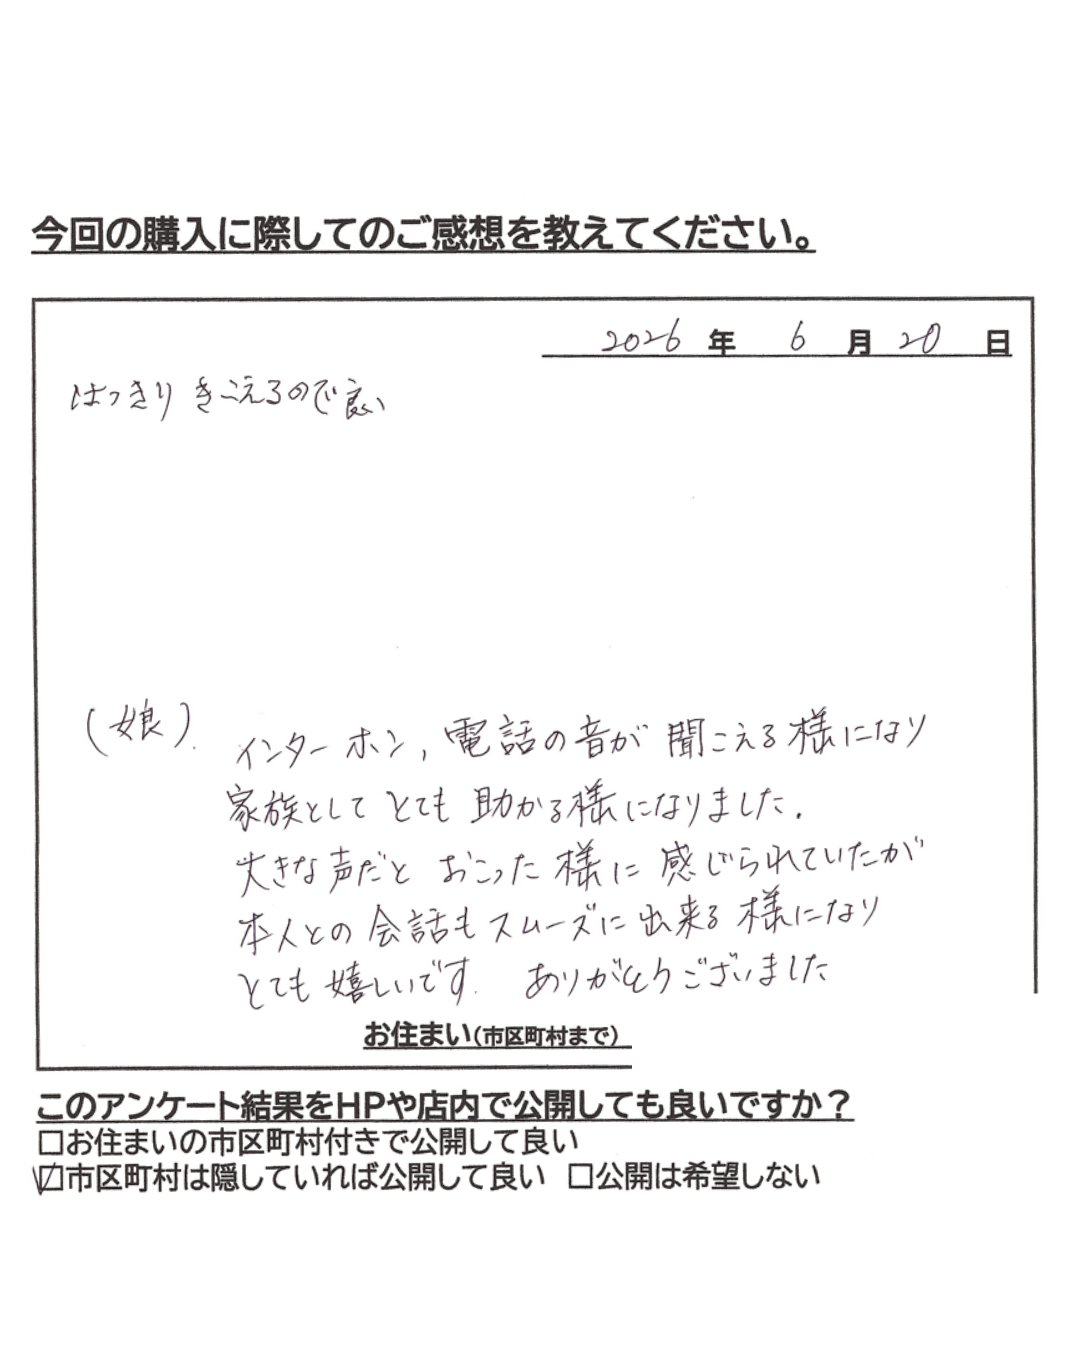 今回の購入に際してのご感想を教えてください。
2026 年 6 月 20 日
はっきりきこえるので良い
(娘)
インターホン, 電話の音が聞こえる様になり
家族としてとても助かる様になりました.
大きな声だと おこった様に感じられていたが
本人との会話もスムーズに出来る様になり
とても嬉しいです. ありがとうございました
お住まい(市区町村まで)
このアンケート結果をHPや店内で公開しても良いですか?
□お住まいの市区町村付きで公開して良い
☑市区町村は隠していれば公開して良い □公開は希望しない